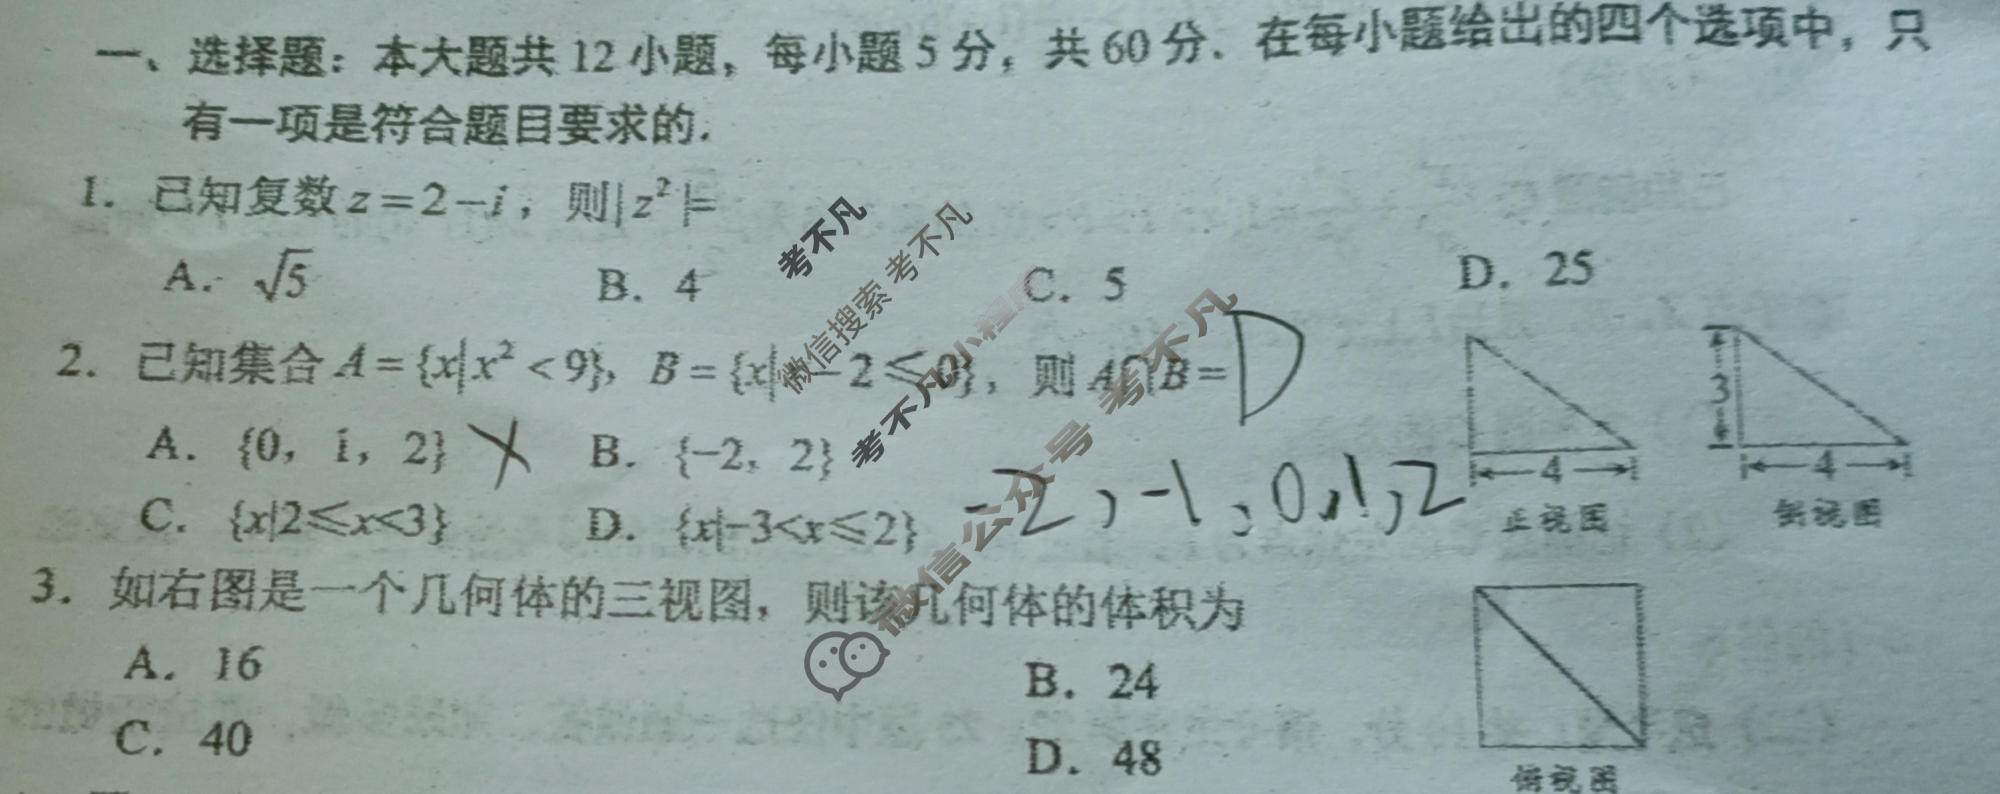 一、选择题：本大题共 12 小题，每小题 5 分，共 60 分．在每小题给出的四个选项中，只
有一项是符合题目要求的．
1．已知复数 z=2-i，则|z²|=
A．√5 B．4 C．5 D．25
2．已知集合 A={x|x²<9}，B={x| -2≤0}，则 A∩B= D
A．{0，1，2} × B．{-2，2}
C．{x|2≤x<3} D．{x|-3<x≤2} -2，-1，0，1，2
3
4
正视图
4
侧视图
3．如右图是一个几何体的三视图，则该几何体的体积为
A．16 B．24
C．40 D．48
俯视图
考不凡
微信搜索 考不凡
考不凡小程序
微信公众号 考不凡